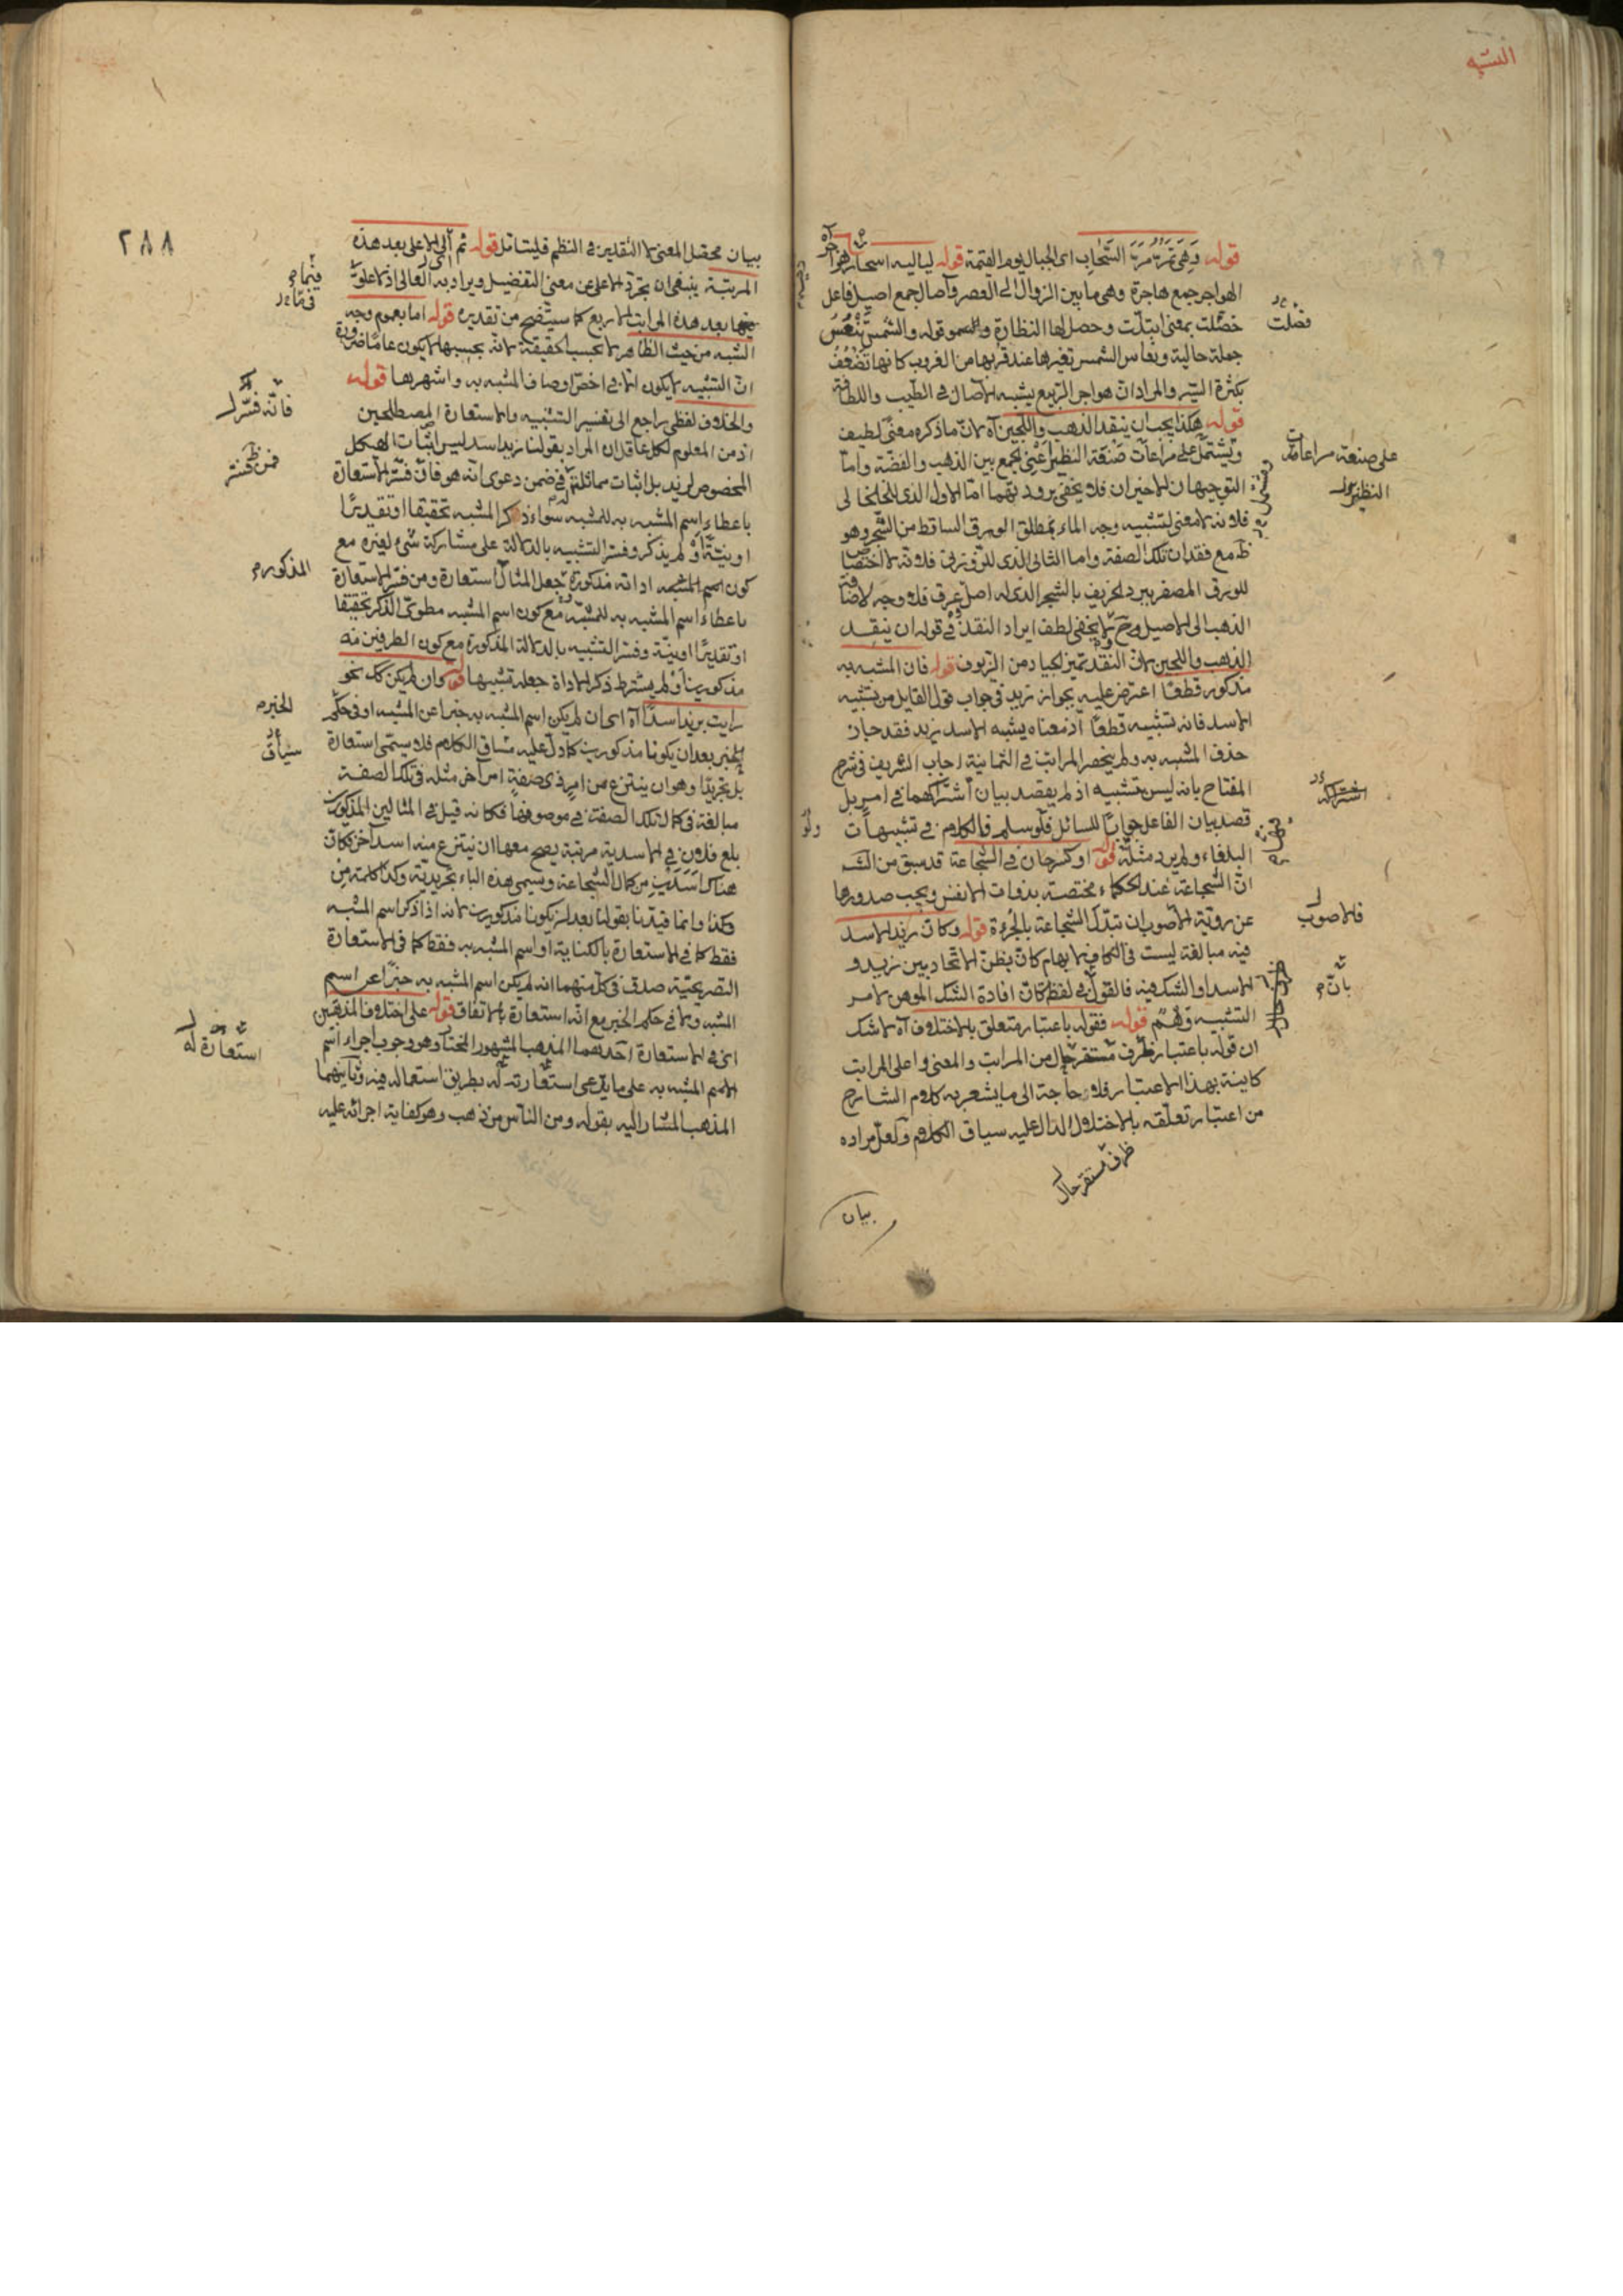 التشبيه
قوله وَهِيَ تَمُرُّ مَرَّ السَّحَابِ اى الجبال يوم القيمة قوله لياليه اسحار هواجر آه
الهواجر جمع هاجرة وهى ما بين الزوال الى العصر وآصال جمع اصيل فاعل
خضّلت بمعنى ابتلّت وحصل لها النظارة قوله والشمس تَنْعَسُ
جملة حالية ونعاس الشمس تغيرها عند قربها من الغروب كانها تضعف
بكثرة السير والمراد ان هواجر الربيع يشبه الآصال فى الطيب واللطافة
قوله هكذا يجب ان ينقد الذهب واللجين آه لانّ ما ذكره معنى لطيف
ويشتمل على مراعات صَنْعَة النظير اعنى الجمع بين الذهب والفضّة وامّا
التوجيهان الاخيران فلا يخفى برودتهما امّا الاول الذى للخلخالى
فلانه لا معنى لتشبيه وجه الماء بمطلق الورق الساقط من الشجر وهو
ظ مع فقدان تلك الصفة واما الثانى الذى للزوزنى فلانه لا اختصاص
للورق المصفر ببرد الخريف بالشجر الذى له اصل عرق فلا وجه لاضافة
الذهب الى الاصيل وح لا يخفى لطف ايراد النقد فى قوله ان ينقد
الذهب واللجين لانّ النقد تميز الجياد من الزيوف قوله فان المشبه به
مذكور قطعًا اعترض عليه بجواز زيد فى جواب قول القايل من يشبه
الاسد فانه تشبيه قطعًا اذ معناه يشبه الاسد زيد فقد جاز
حذف المشبه به ولم ينحصر المراتب فى الثمانية اجاب الشريف فى شرح
المفتاح بانه ليس تشبيه اذ لم يقصد بيان اشتراكهما فى امر بل
قصد بيان الفاعل جوابا للسائل فلو سلم فالكلام فى تشبيهات
البلغاء ولم يرد مثله قوله او كرجان فى الشجاعة قد سبق من
انّ الشجاعة عند الحكماء مختصة بذوات الانفس ويجب صدورها
عن روية الاصوب ان تبدّل الشجاعة بالجرءة قوله وكانّ زيدا الاسد
فيه مبالغة ليست فى الكاف لايهام كانّ بظنّ الاتحاد بين زيد و
الاسد او الشك فيه فالقول فى لفظ كانّ افادة الشك الموهن لامر
التشبيه وَهْمٌ قوله فقوله باعتبار متعلق بالاختلاف آه لا شك
ان قوله باعتبار ظرف مستقر حال من المراتب والمعنى واعلى المراتب
كاينة بهذا الاعتبار فلا حاجة الى ما يشعر به كلام الشارح
من اعتبار تعلّقه بالاختلاف الدال عليه سياق الكلام ولعلّ مراده
ظرف مستقر حال
بيان
فضلت
على صنعة مراعات
النظير
اشتراكه
فالاصوب
بانّ
ولو
٢٨٨
بيان محصّل المعنى لا التقدير فى النظم فليتامّل قوله ثم الاعلى بعد هذه
المرتبة ينبغى ان يجرّد الاعلى عن معنى التفضيل ويراد به العالى اذ لا علوّ
بعد هذه المراتب الاربع كما سيتّضح من تقديره قوله اما بعموم وجه
الشبه من حيث الظاهر لا بحسب الحقيقة لانّه بحسبها لا يكون عامّا ضرورة
انّ التشبيه لا يكون الا فى اخصّ اوصاف المشبه به واشهرها قوله
والخلاف لفظى راجع الى تفسير التشبيه والاستعارة المصطلحين
اذ من المعلوم لكل عاقل ان المراد بقولنا زيد اسد ليس اثبات الهيكل
المخصوص لزيد بل اثبات مماثلته فى ضمن دعوى انّه هو فان فسّر الاستعارة
باعطاء اسم المشبه به للمشبه سواء ذكر المشبه تحقيقا او تقديرًا
او نيّة او لم يذكر وفسّر التشبيه بالدلالة على مشاركة شئ لغيره مع
كون اسم المشبه اداته مذكورة جعل المثال استعارة ومن فسّر الاستعارة
باعطاء اسم المشبه به للمشبّه مع كون اسم المشبه مطوىّ الذكر تحقيقا
او تقديرًا او نيّة وفسّر التشبيه بالدلالة المذكورة مع كون الطرفين
مذكورين او لم يشترط ذكر الاداة جعله تشبيها قوله وان لم يكن كك نحو
رايت بزيد اسدًا آه اى ان لم يكن اسم المشبه به خبرا عن المشبه او فى حكم
الخبر بعد ان يكونا مذكورين كما دلّ عليه مساق الكلام فلا يسمّى استعارة
بل تجريدًا وهو ان ينتزع من امر ذى صفةٍ امر آخر مثله فى تلك الصفة
مبالغة فى كمال تلك الصفة فى موصوفها فكانه قيل فى المثالين المذكورين
بلغ فلان فى الاسدية مرتبة يصح معها ان ينتزع منه اسد آخر فكان
هناك اَسَدَيْنِ من كمال الشجاعة ويسمى هذه الباء تجريدية وكذا كلمة مِن
وكذا وانما قيّدنا بقولنا بعد ان يكونا مذكورين لانه اذا ذكر اسم المشبه
فقط كما فى الاستعارة بالكناية او اسم المشبه به فقط كما فى الاستعارة
التصريحيّة صدق فى كل منهما انه لم يكن اسم المشبه به خبرًا عن اسم
المشبه ولا فى حكم الخبر مع انّه استعارة بالاتفاق قوله على اختلاف المذهبين
اى فى الاستعارة احدهما المذهب المشهور المختار وهو وجوب اجراء اسم
الاسم المشبه به على ما يدّعى استعارته له بطريق استعماله فيه وثانيهما
المذهب المشار اليه بقوله ومن الناس من ذهب وهو كفاية اجرائه عليه
فيهما
فانّه فسّر
فمن فسّر
المذكور
الخبر
سياق
استعارة له